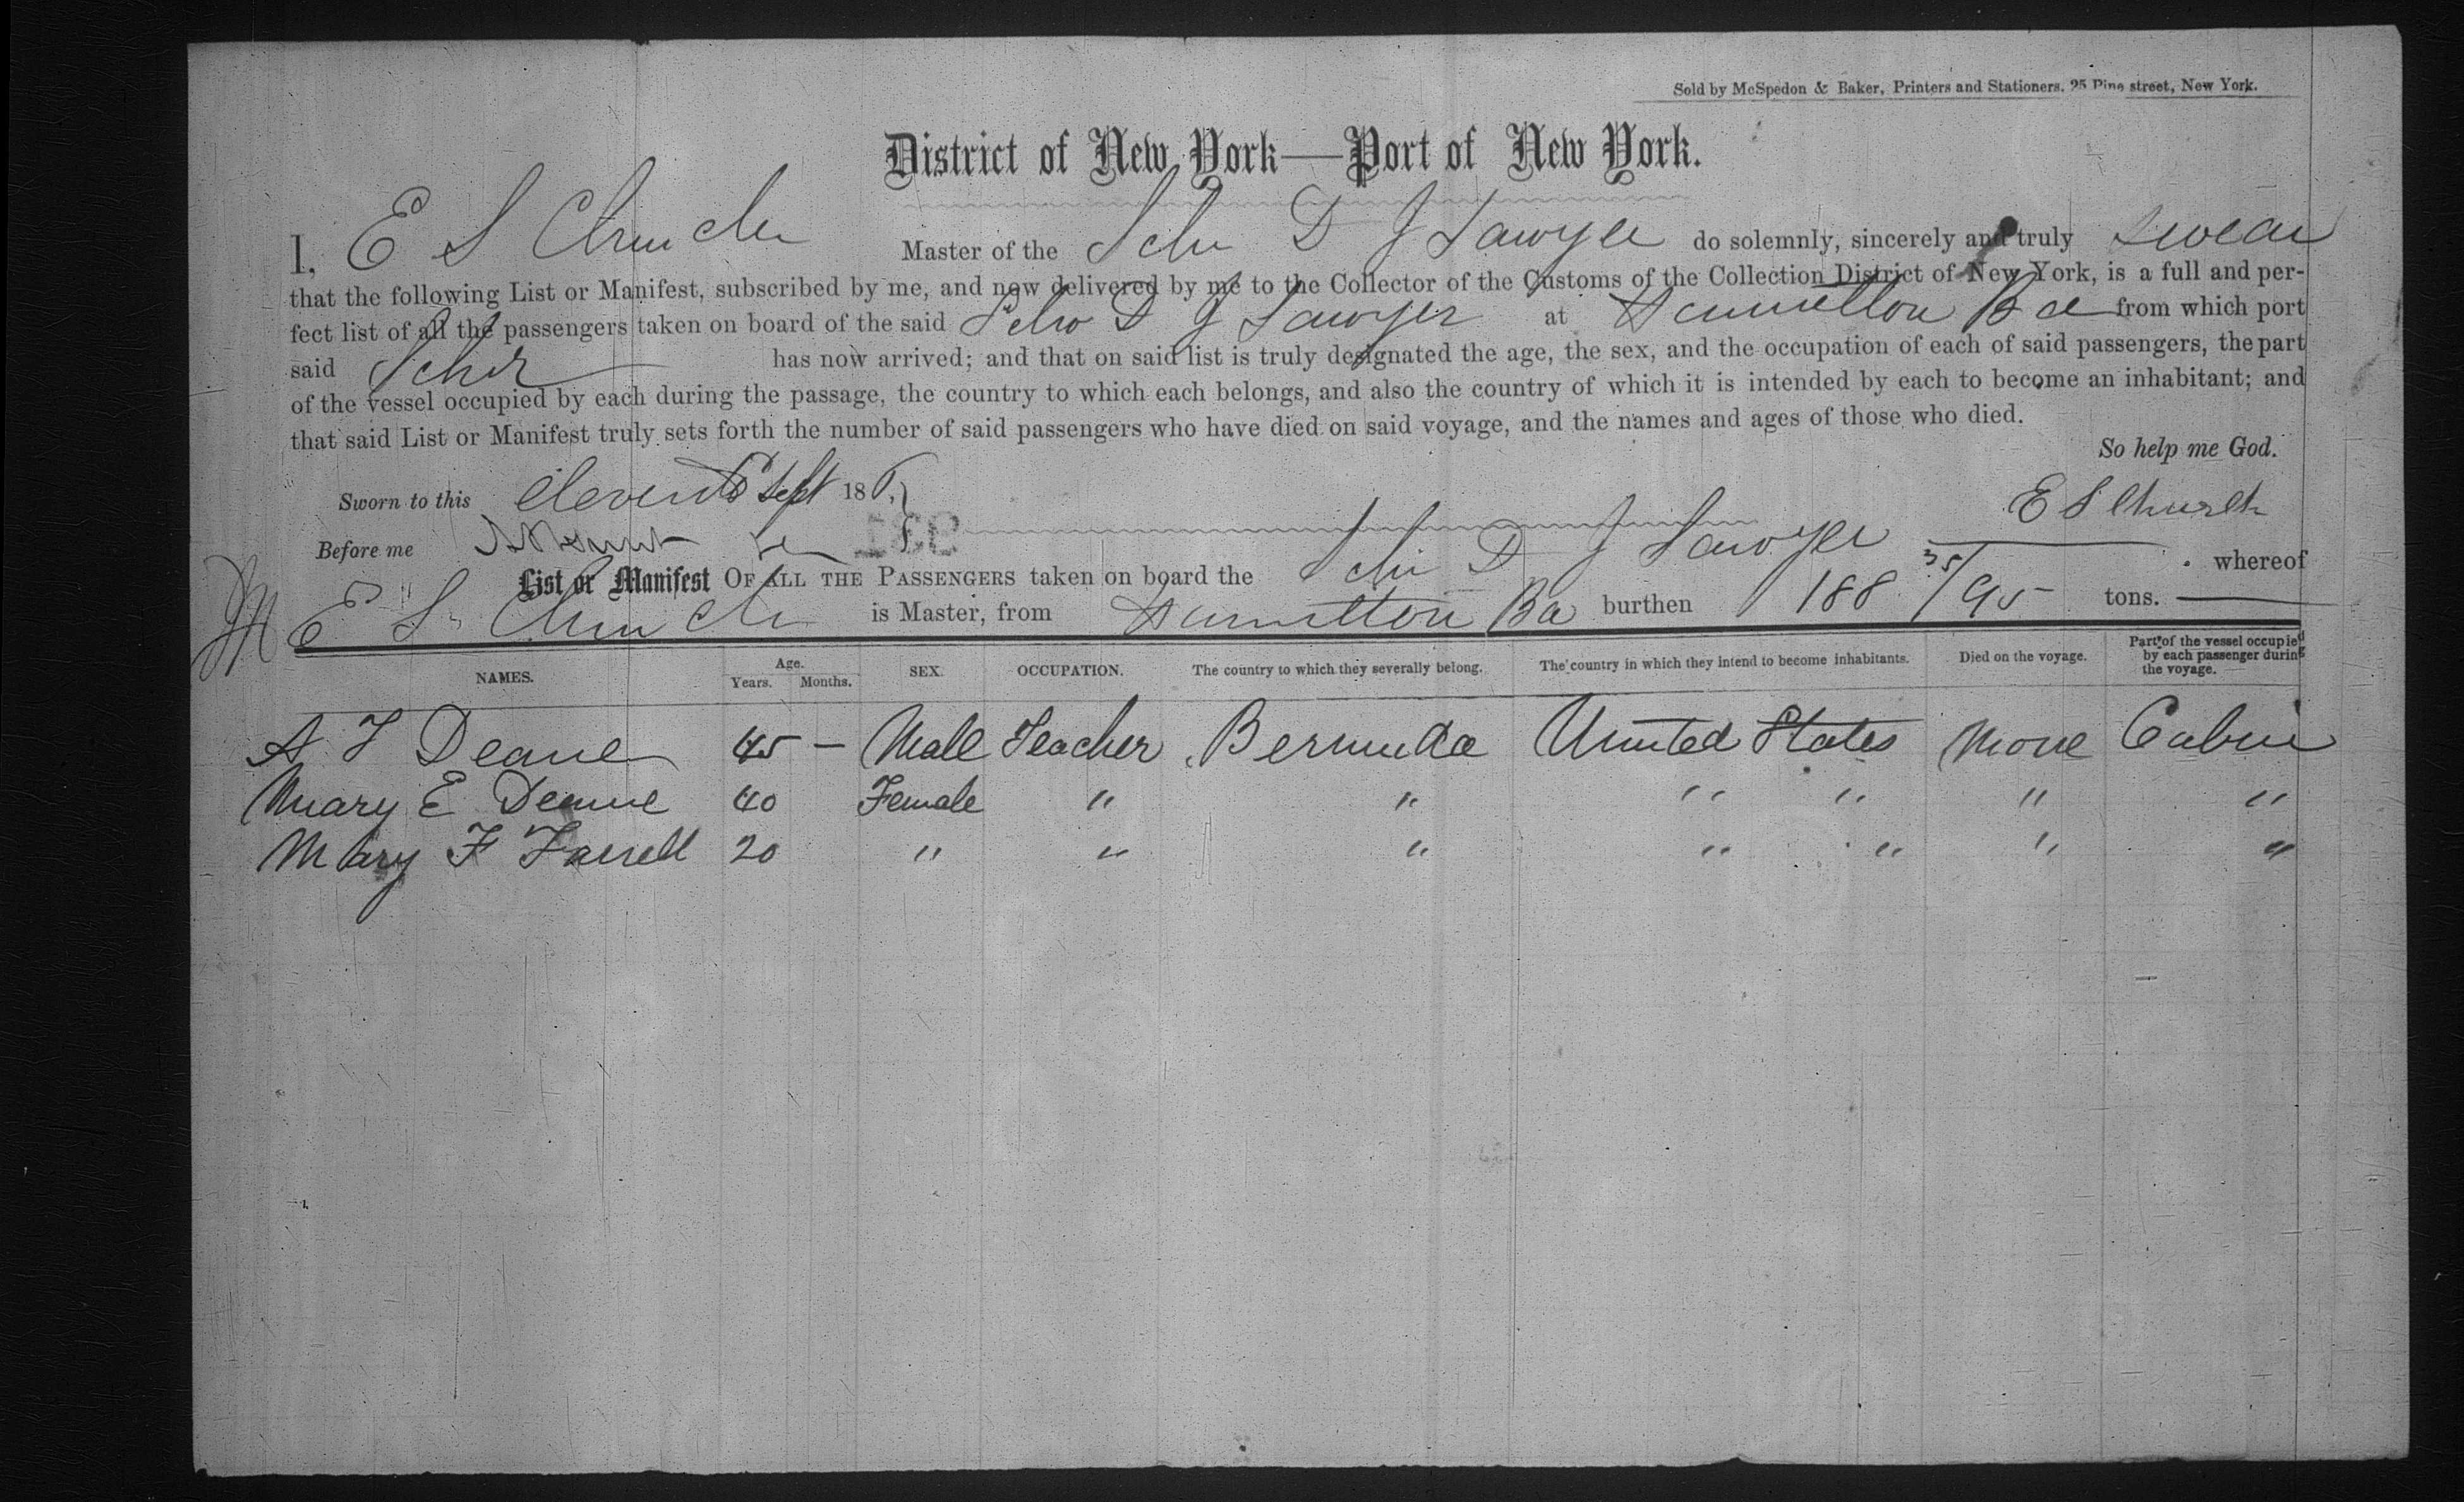 Sold by McSpedon & Baker, Printers and Stationers, 25 Pine street, New York.
District of New York—Port of New York.
I, E S Church Master of the Schr D J Sawyer do solemnly, sincerely and truly swear
that the following List or Manifest, subscribed by me, and now delivered by me to the Collector of the Customs of the Collection District of New York, is a full and per-
fect list of all the passengers taken on board of the said Schr D J Sawyer at Hamilton Ba from which port
said Schr has now arrived; and that on said list is truly designated the age, the sex, and the occupation of each of said passengers, the part
of the vessel occupied by each during the passage, the country to which each belongs, and also the country of which it is intended by each to become an inhabitant; and
that said List or Manifest truly sets forth the number of said passengers who have died on said voyage, and the names and ages of those who died.
So help me God.
Sworn to this eleventh Sept 186
E S Church
Before me
List or Manifest OF ALL THE PASSENGERS taken on board the Schr D J Sawyer whereof
E S Church is Master, from Hamilton Ba burthen 188 35/95 tons.
NAMES. Age. Years. Months. SEX. OCCUPATION. The country to which they severally belong. The country in which they intend to become inhabitants. Died on the voyage. Part of the vessel occupied by each passenger during the voyage.
A F Deane 45 — Male Teacher Bermuda United States None Cabin
Mary E Deane 40 Female " " " " " "
Mary F Farrell 20 " " " " " " "